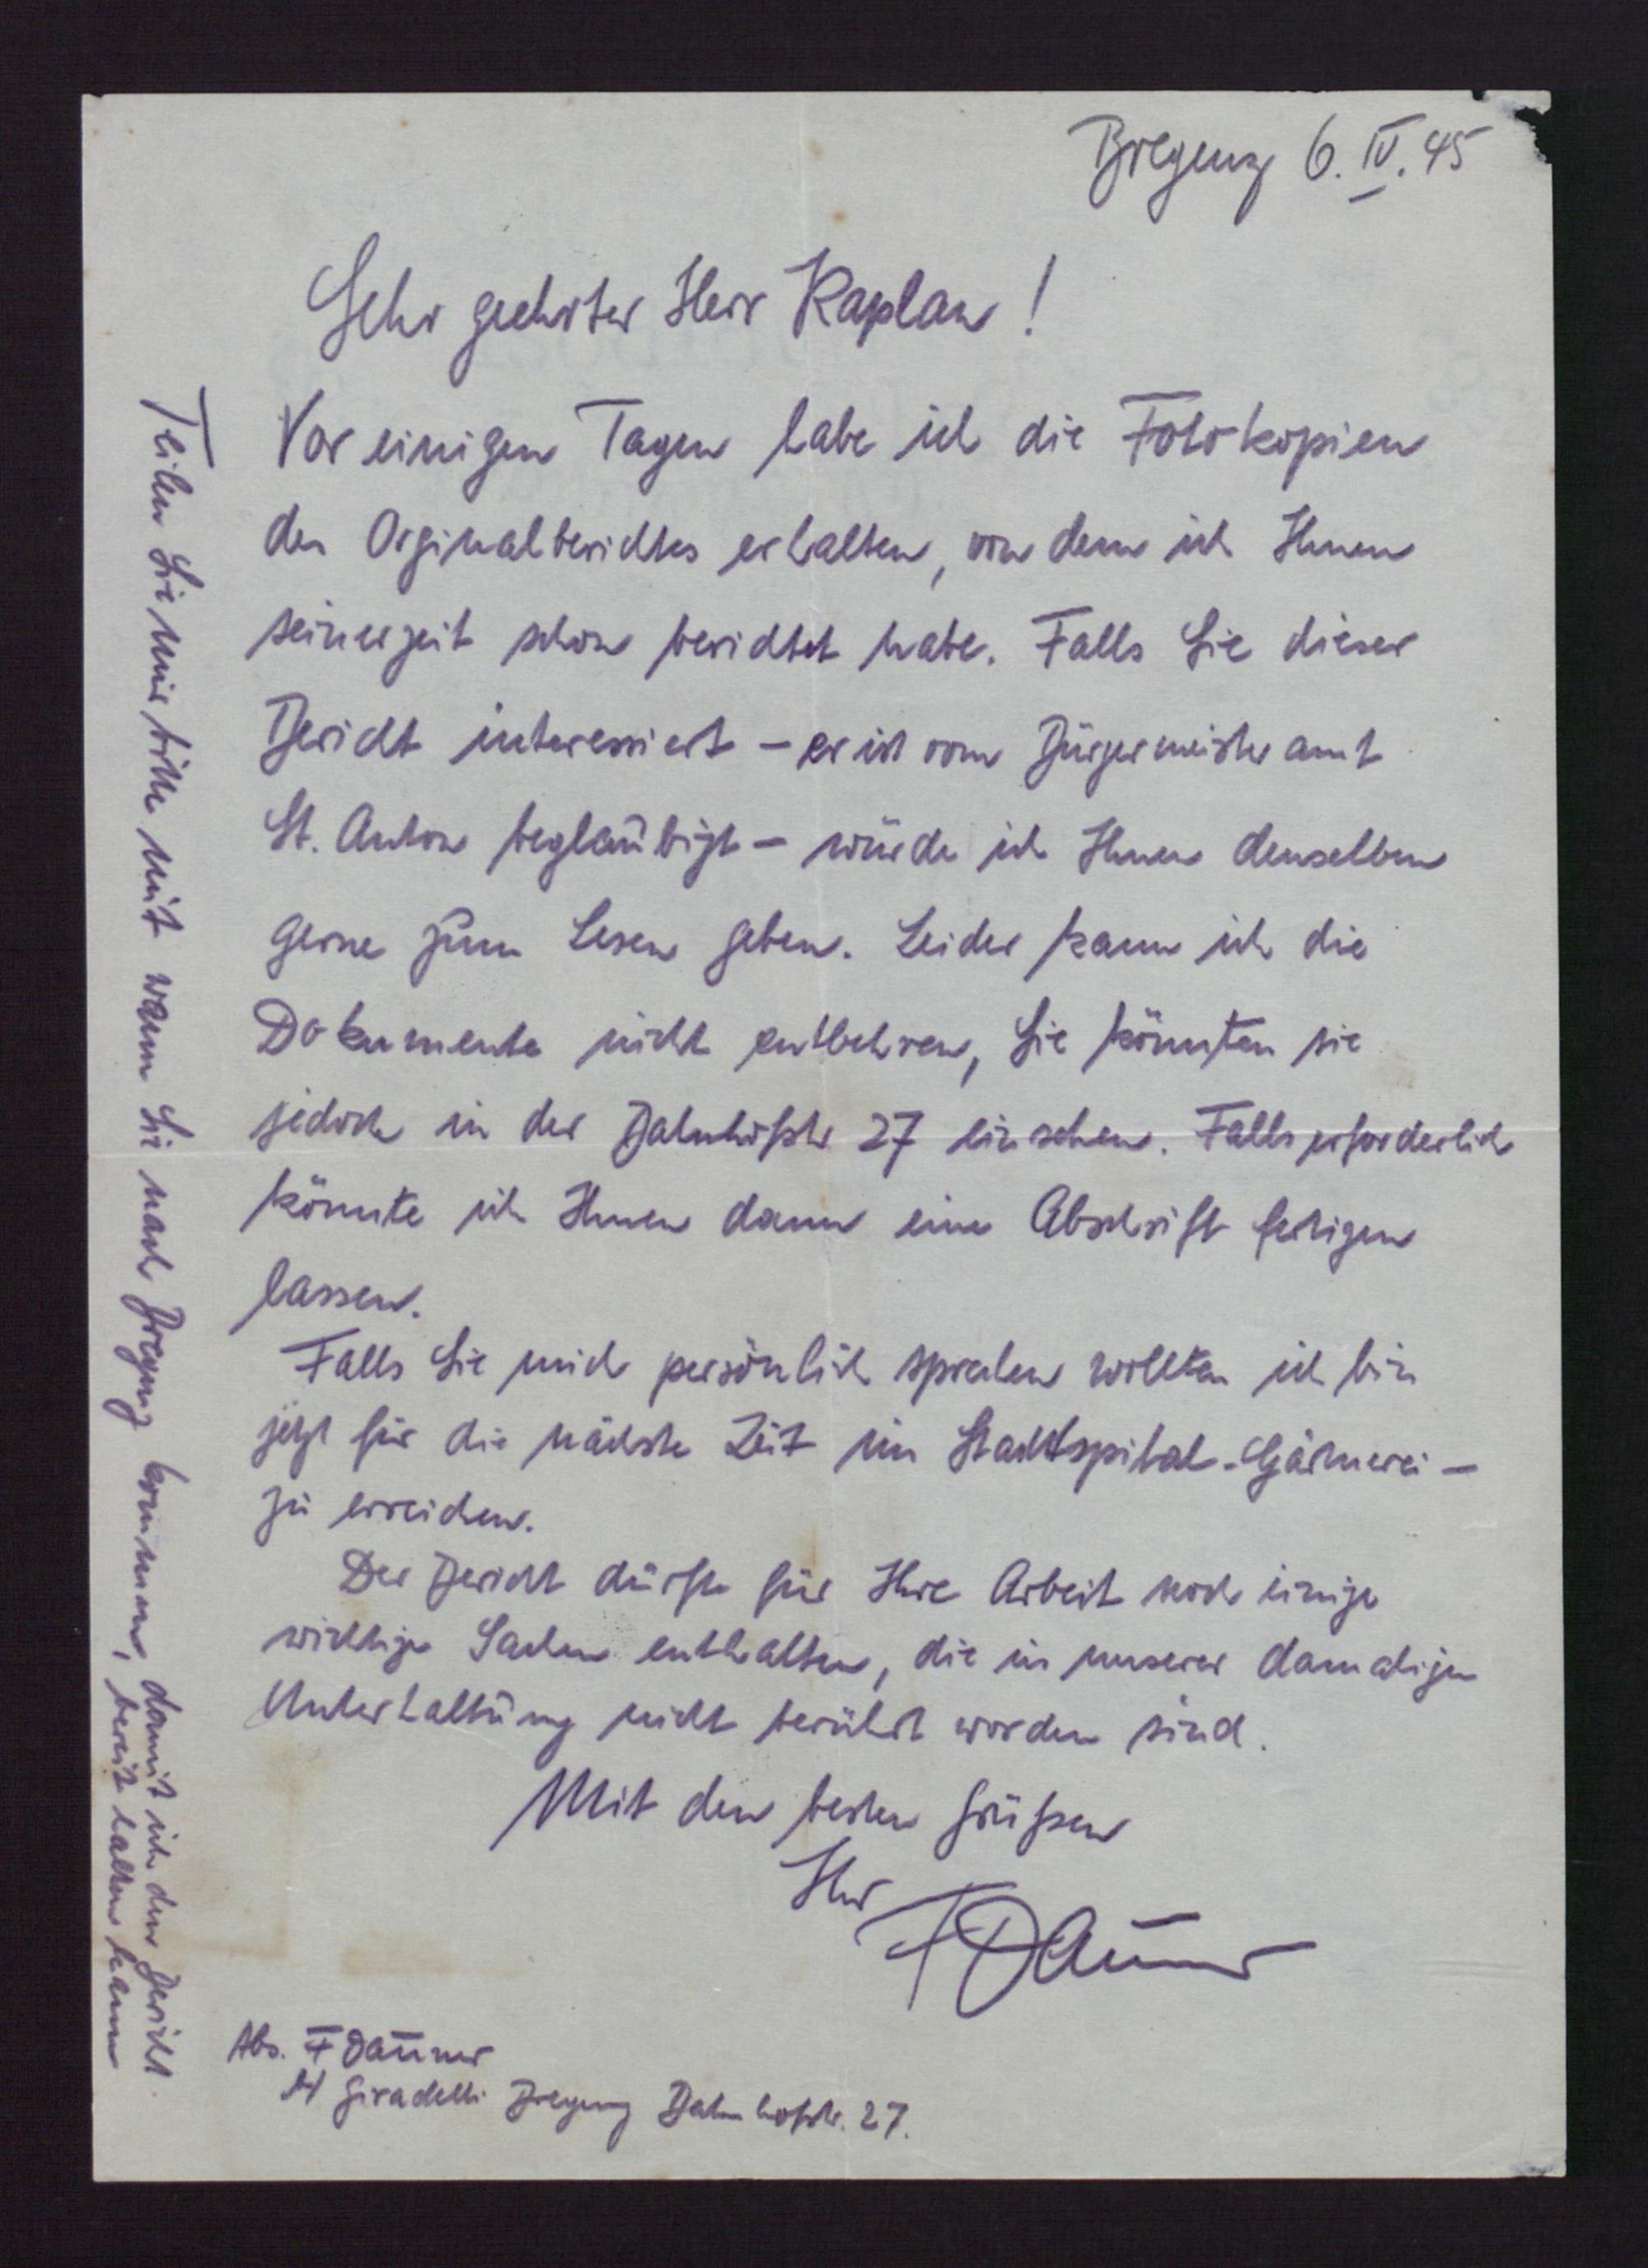 Bregenz 6. IV. 45
Sehr geehrter Herr Kaplan!
Vor einigen Tagen habe ich die Fotokopien
des Orginalberichtes erhalten, von dem ich Ihnen
seinerzeit schon berichtet habe. Falls Sie dieser
Bericht interessiert – er ist vom Bürgermeisteramt
St. Anton beglaubigt – würde ich Ihnen denselben
gerne zum Lesen geben. Leider kann ich die
Dokumente nicht entbehren, Sie könnten sie
jedoch in der Bahnhofstr 27 einsehen. Falls erforderlich
könnte ich Ihnen dann eine Abschrift fertigen
lassen.
Falls Sie mich persönlich sprechen wollten ich bin
jetzt für die nächste Zeit im Stadtspital-Gärtnerei –
zu erreichen.
Der Bericht dürfte für Ihre Arbeit noch einige
wichtige Sachen enthalten, die in unserer damaligen
Unterhaltung nicht berührt worden sind.
Mit den besten Grüßen
Ihr
F Daumer
Abs. F Daumer
Giradelli Bregenz Bahnhofstr. 27.
Teilen Sie mir bitte mit wann Sie nach Bregenz kommen, damit ich den Bericht
bereit halten kann